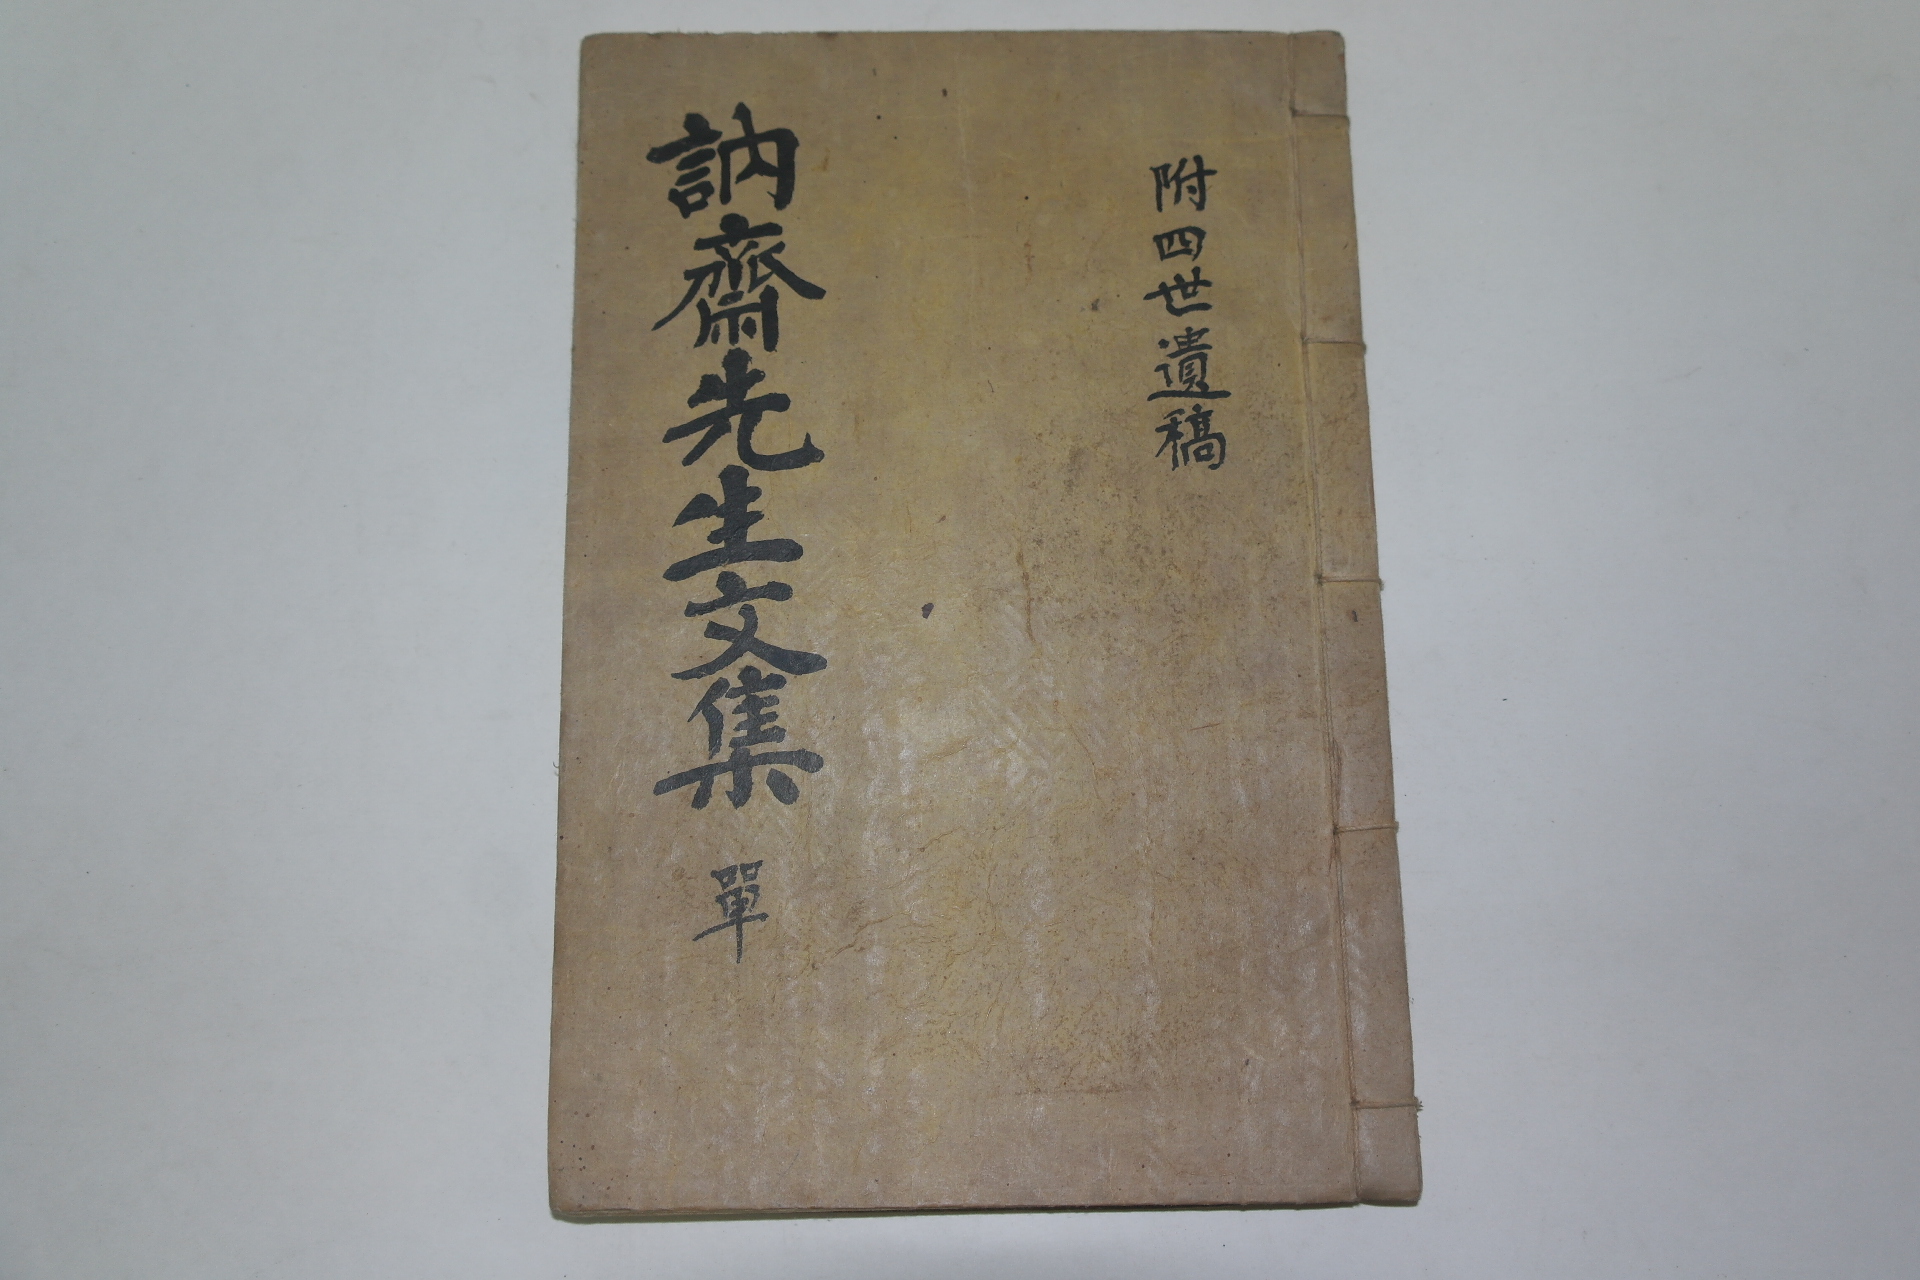 附四世遺稿
訥齋先生文集 單